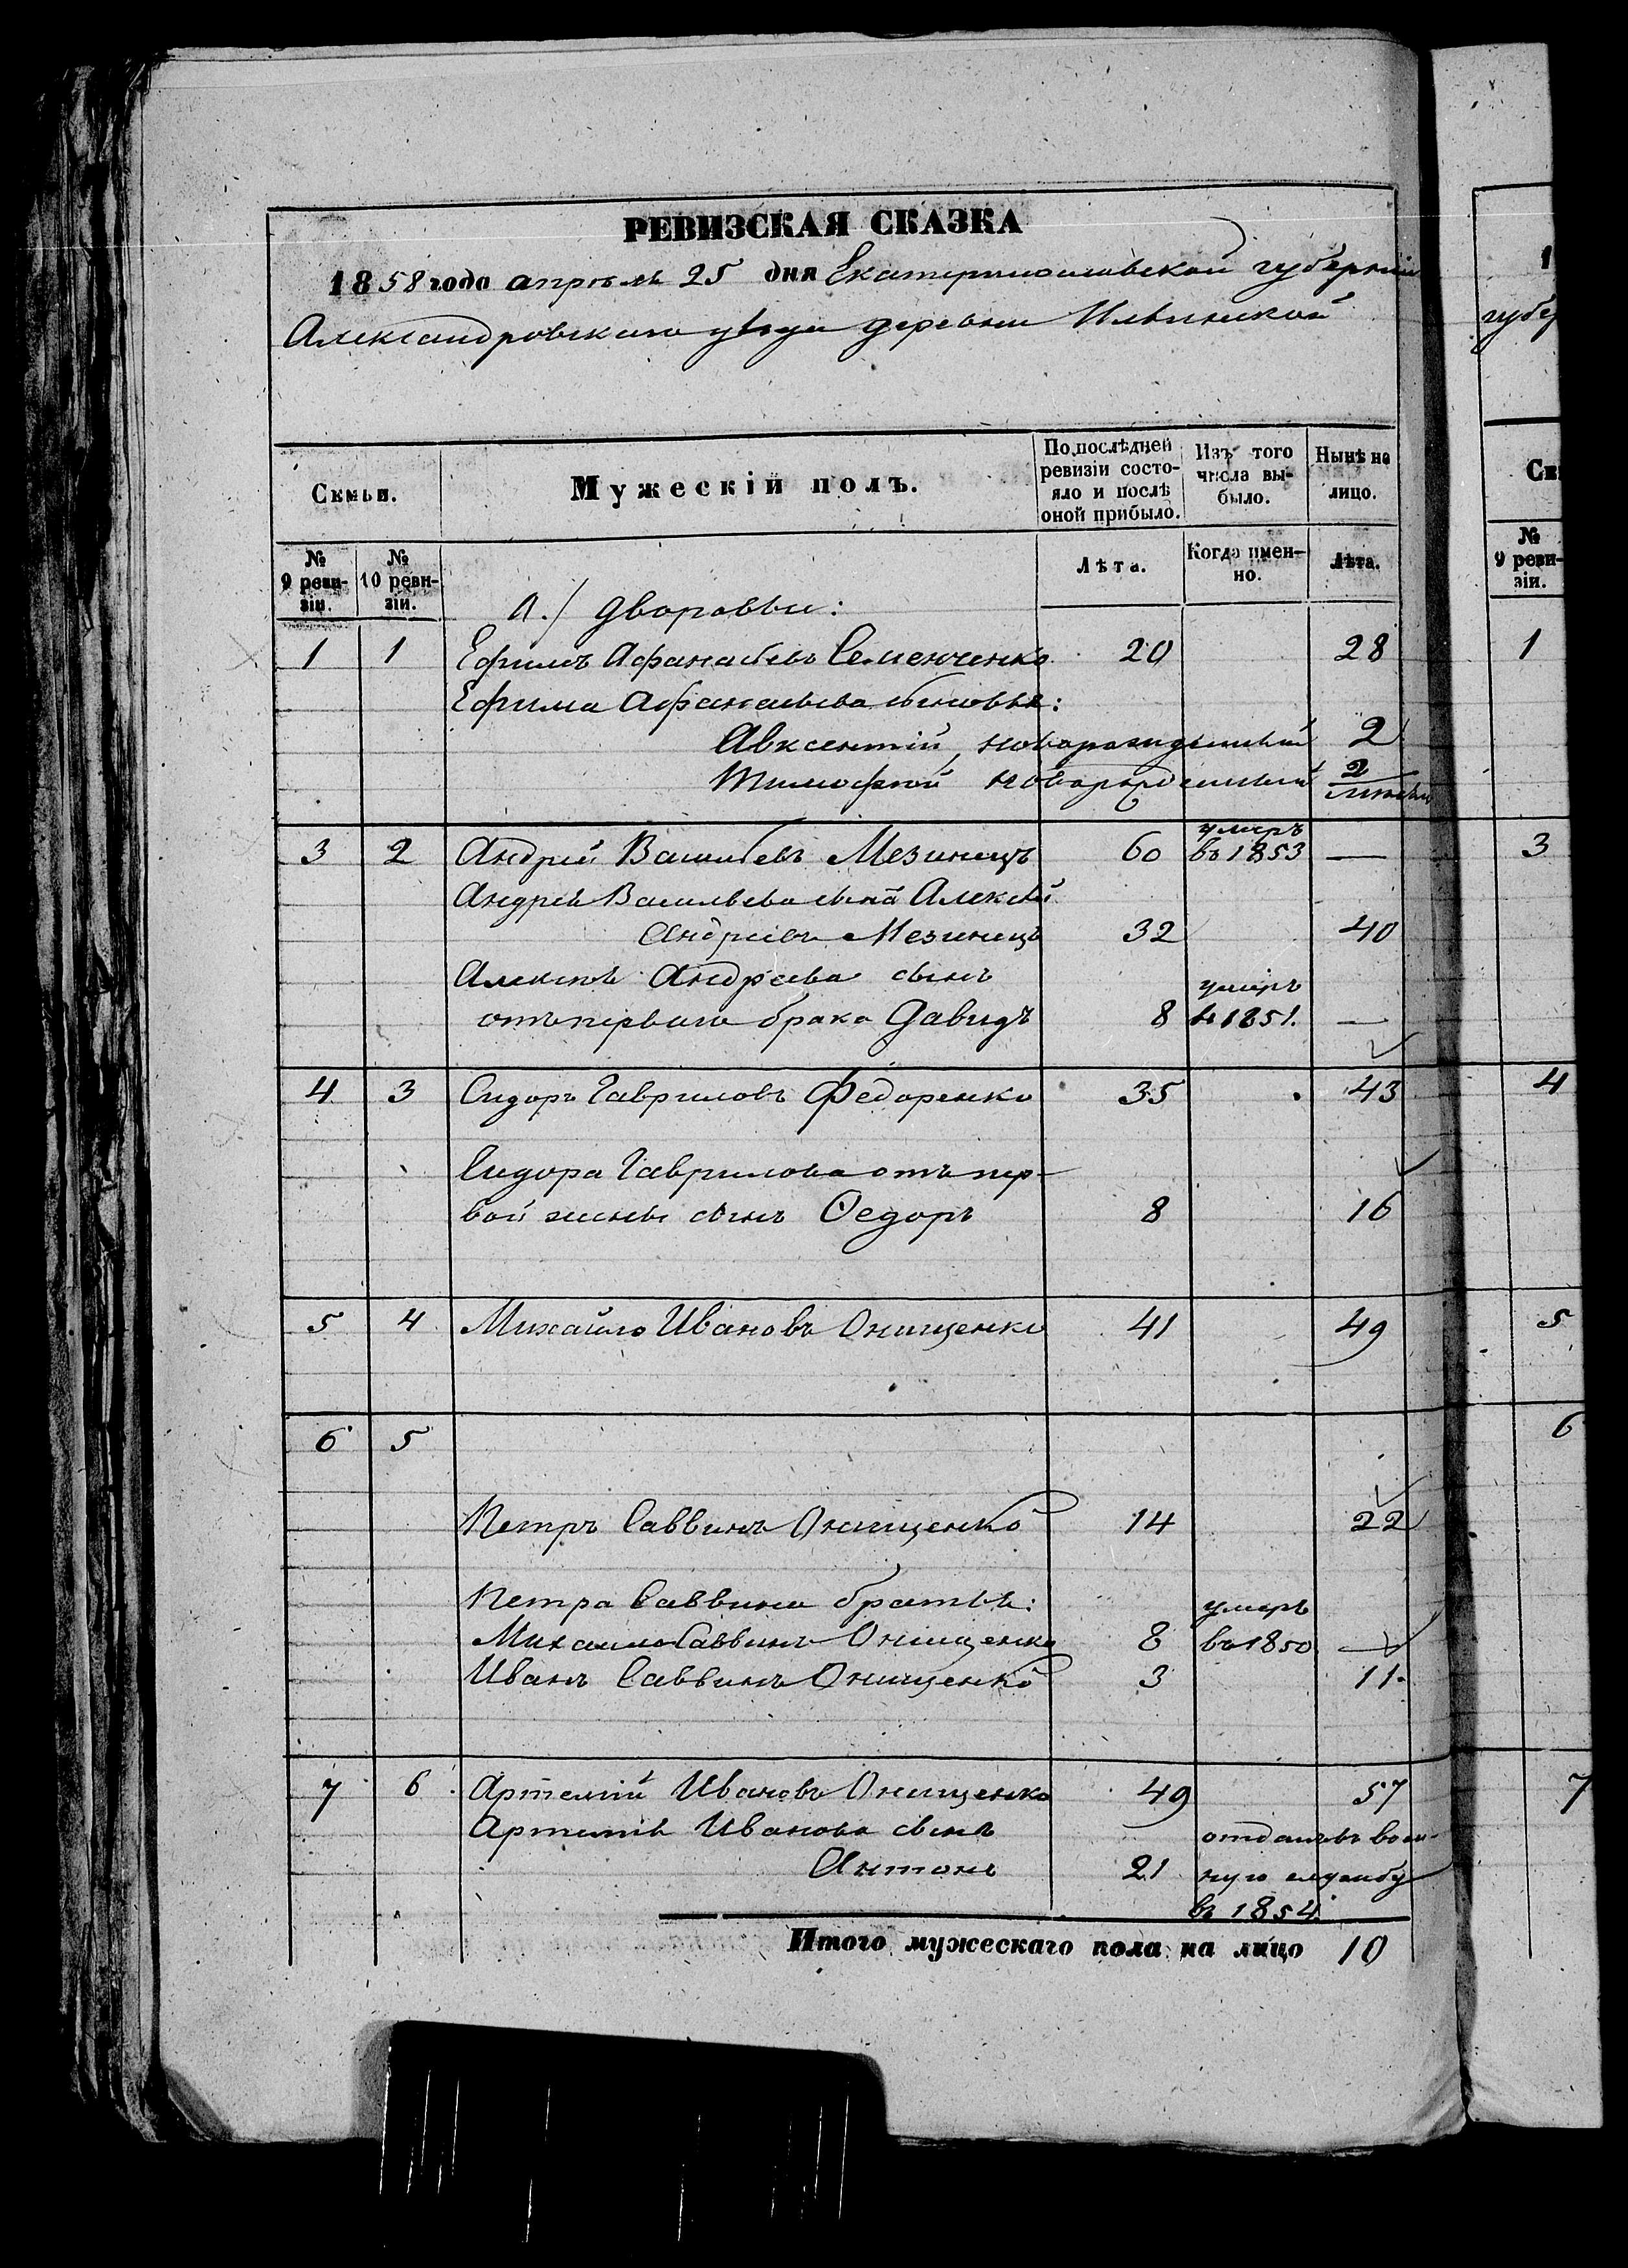 РЕВИЗСКАЯ СКАЗКА
1858 года апрѣля 25 дня Екатеринославской губерніи
Александровскаго уѣзда деревни Ильинской
Семьи.
Мужескій полъ.
По послѣдней ревизіи состо-
яло и послѣ
оной прибыло.
Изъ того
числа вы-
было.
Нынѣ на
лицо.
№
9 реви-
зіи.
№
10 реви-
зіи.
Лѣта.
Когда имен-
но.
Лѣта.
а./ дворовые:
1 1 Ефимъ Афанасьевъ Семенченко 20 28
Ефима Афанасьева сыновья:
Авксентій, новорожденный 2
Тимофей новорожденный 2
3 2 Андрей Васильевъ Мезинецъ 60 умеръ
въ 1853 —
Андрея Васильева сынъ Алексѣй
Андреевъ Мезинецъ 32 40
Алексѣя Андреева сынъ
отъ перваго брака Давидъ 8 умеръ
въ 1851. —
4 3 Сидоръ Гавриловъ Федоренко 35 43
Сидора Гаврилова отъ пер-
вой жены сынъ Ѳедоръ 8 16
5 4 Михайло Ивановъ Онищенко 41 49
6 5
Петръ Саввинъ Онищенко 14 22
Петра Саввина братья:
Михайло Саввинъ Онищенко 8 умеръ
въ 1850 —
Иванъ Саввинъ Онищенко 3 11
7 6 Артемій Ивановъ Онищенко 49 57
Артемія Иванова сынъ
Антонъ 21 отданъ въ воен-
ную службу
въ 1854
Итого мужескаго пола на лицо 10
1
губер
Се
№
9 реви-
зіи.
1
3
4
5
6
7